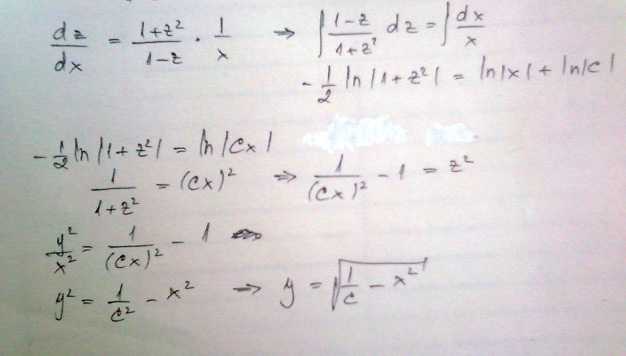 dz/dx = (1+z²)/(1-z) · 1/x ⇒ ∫ (1-z)/(1+z²) dz = ∫ dx/x
-1/2 ln|1+z²| = ln|x| + ln|c|
-1/2 ln|1+z²| = ln|Cx|
1/(1+z²) = (Cx)² ⇒ 1/(Cx)² - 1 = z²
y²/x² = 1/(Cx)² - 1
y² = 1/C² - x² ⇒ y = √(1/C - x²)